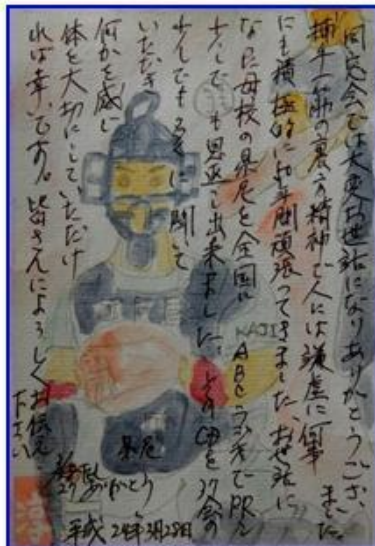 同窓会では大変お世話になりありがとうござ
ました。
捕手一筋の裏方精神で人には謙虚に何事
にも積極的に 年間頑張ってきました。お世話に
なった母校の県尼を全国にABCラジオでPRし
少しでも恩返し出来ました。 CDを 会の
少しでも 聞いて
いただき
何かを感じ
体を大切にしていただけ
れば幸いです。皆さんによろしくお伝え
下さい
KAJI
県尼
ありがとう
平成24年3月28日